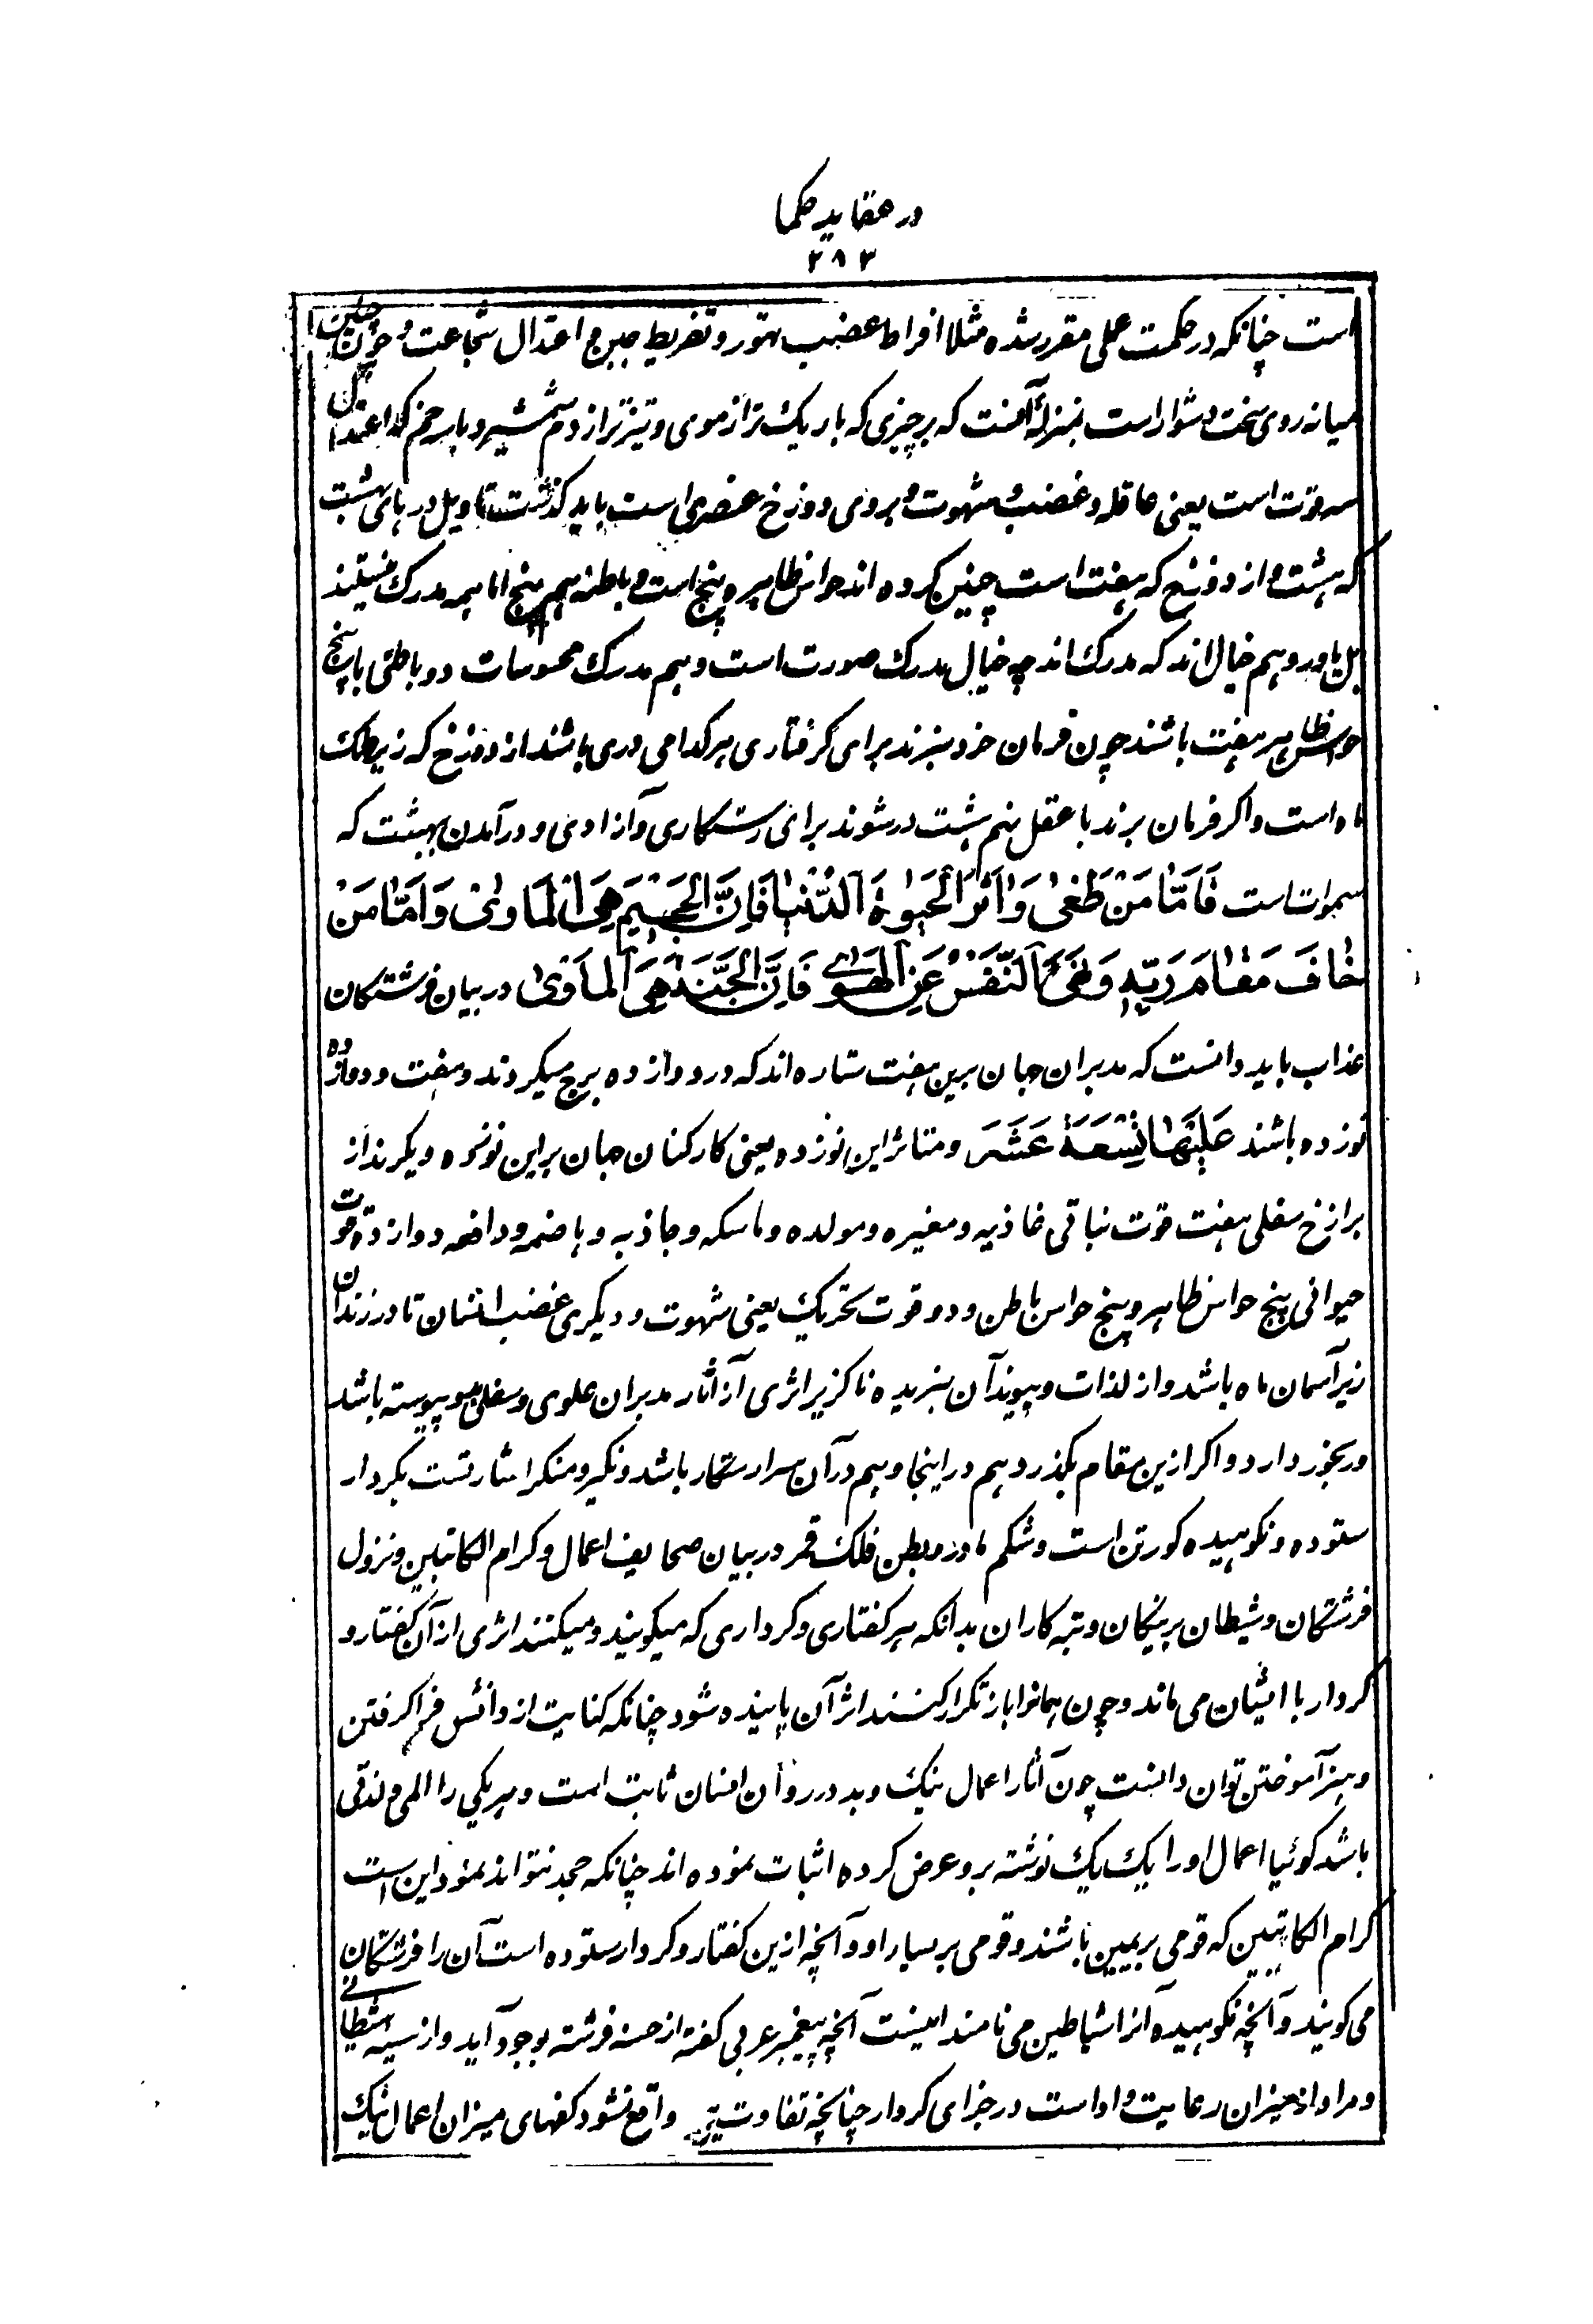 در عقاید حکما
۲۸۳
است چنانکه در حکمت عملی مقرر شده مثلا افراط غضب تهور و تفریط جبن و اعتدال شجاعت و چون چنین
میانه روی سخت دشوار است بمنزلهٔ آنست که بر چیزی که باریک تر از موی و تیزتر از دم شمشیر و باسه خم که اعتدال
سه قوت است یعنی عاقله و غضب و شهوت و بروی دوزخ عنصری است باید گذشت تاویل درهای بهشت
که هشت و از دوزخ که هفت است چنین کرده اند حواس ظاهره پنج است و باطنه هم پنج اما همه مدرک نیستند
بل یاور وهم خیال اند که مدرک اند چه خیال مدرک صورت است و هم مدرک محسوسات دو باطنی با پنج
حواس ظاهر هفت باشند چون فرمان خرد نبرند برای گرفتاری هر کدامی دری باشند از دوزخ که زیر فلک
ماه است و اگر فرمان برند با عقل بنم هشت در شوند برای رستگاری و آزادی و در آمدن بهشت که
سموات است فَاَمّا مَنْ طَغیٰ وَ اٰثَرَ الْحَیٰوةَ الدُّنْیٰا فَاِنَّ الْجَحِیْمَ هِیَ الْمَاویٰ وَ اَمّٰا مَنْ
خٰافَ مَقٰامَ رَبِّهِ وَ نَهَیَ النَّفْسَ عَنِ الْهَویٰ فَاِنَّ الْجَنَّةَ هِیَ الْمَاَویٰ در بیان فرشتگان
عذاب باید دانست که مدبران جهان برین هفت ستاره اند که در دوازده برج میگردند و هفت و دوازده
نوزده باشند عَلَیْهٰا تِسْعَةَ عَشَرَ و متاثر این نوزده یعنی کارکنان جهان براین نوزده دیگرند از
برازخ سفلی هفت قوت نباتی غاذیه و مغیره و مولده و ماسکه و جاذبه و هاضمه و دافعه دوازده قوت
حیوانی پنج حواس ظاهر و پنج حواس باطن و دو قوت تحریک یعنی شهوت و دیگری غضب انسان تا در زندان
زیر آسمان ماه باشد و از لذات و پیوند آن نبریده ناگزیر اثری از آثار مدبران علوی و سفلی بدو پیوسته باشد
و رنجور دارد و اگر ازین مقام بگذرد هم در اینجا و هم در آن سرا رستگار باشد و نکیر و منکر اشارتست بکردار
ستوده و نکوهیده گور تن است و شکم مادر و بطن فلک قمر در بیان صحایف اعمال و کرام الکاتبین و نزول
فرشتگان و شیطان بر نیکان و تبه کاران بدانکه هر گفتاری و کرداری که میگویند و میکنند اثری از آن گفتار و
کردار با ایشان می ماند و چون همانرا باز تکرار کنند اثر آن پاینده شود چنانکه کنایت از دانش فرا گرفتن
و هنر آموختن توان دانست چون آثار اعمال نیک و بد در روان انسان ثابت است و هر یکی را المی و لذتی
باشد گوئیا اعمال او را یک یک نوشته برو عرض کرده اثبات نموده اند چنانکه جحد نتواند نمود این است
کرام الکاتبین که قومی بر یمین باشند و قومی بر یسار او و آنچه ازین گفتار و کردار ستوده است آن را فرشتگان
می گویند و آنچه نکوهیده آنرا شیاطین می نامند اینست آنچه پیغمبر عربی گفته از حسنه فرشته بوجود آید و از سیئه شیطانی
و مراد از میزان رعایت و اواست در جزای کردار چنانچه تفاوت نیز واقع نشود کفهای میزان اعمال نیک